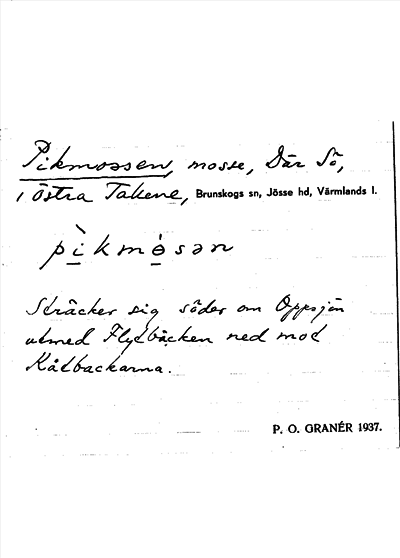 Pikmossen, mosse, Där Sö,
i Östra Takene, Brunskogs sn, Jösse hd, Värmlands l.
pìkmɵ̀sən
Sträcker sig söder om Oppsjön
utmed Flytbäcken ned mot
Kålbackarna.
P. O. GRANÉR 1937.